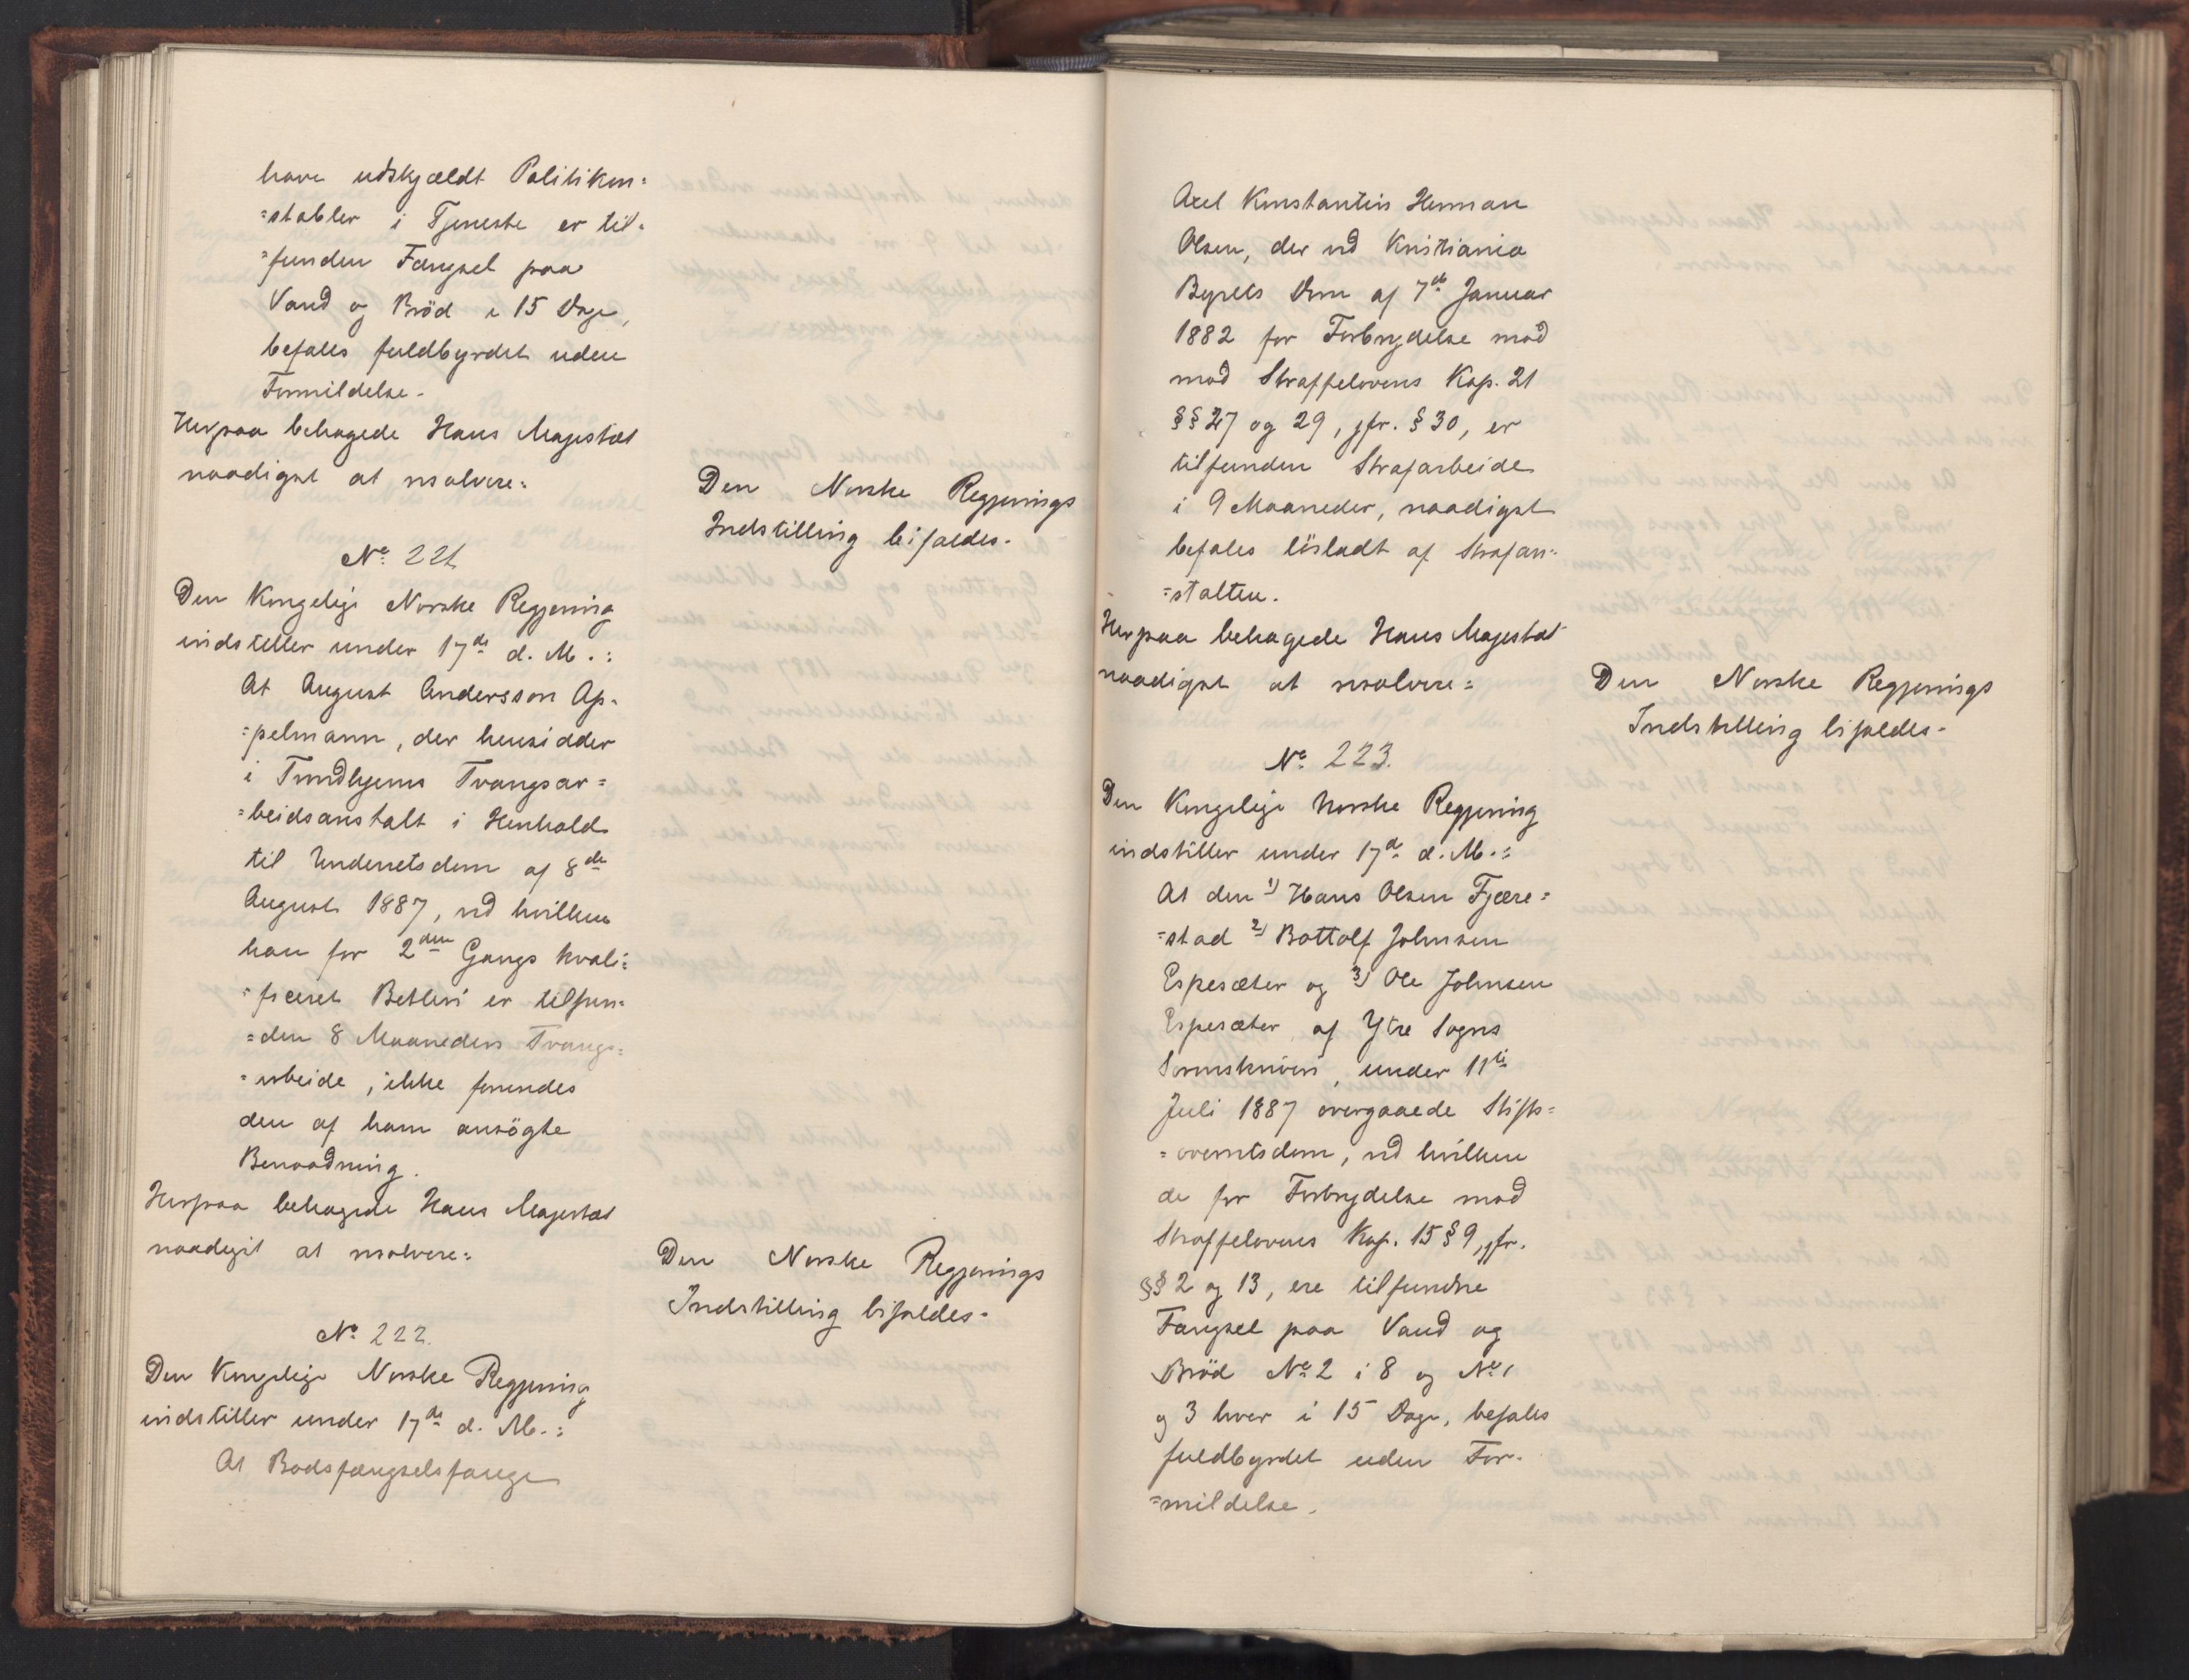 have udskjældt Politikon=
=stabler i Tjeneste er til=
=funden Fængsel paa
Vand og Bröd i 15 Dage,
befales fuldbyrdet uden
Formildelse.
Herpaa behagede Hans Majestæt
naadigst at resolvere:
Den Norske Regjerings
Indstilling bifaldes.
No. 221.
Den Kongelige Norske Regjering
indstiller under 17de d. M.:
At August Andersson Ap=
=pelmann, der hensidder
i Trondhjems Tvangsar=
=beidsanstalt i Henhold
til Underretsdom af 8de
August 1887, ved hvilken
han for 2den Gangs kvali=
=ficeret Betleri er tilfun=
=den 8 Maaneders Tvangs=
=arbeide, ikke forundes
den af ham ansögte
Benaadning.
Herpaa behagede Hans Majestæt
naadigst at resolvere:
Den Norske Regjerings
Indstilling bifaldes.
No. 222.
Den Kongelige Norske Regjering
indstiller under 17de d. M.:
At Bodsfængselsfange
Axel Konstantin Herman
Olsen, der ved Kristiania
Byrets Dom af 7de Januar
1882 for Forbrydelse mod
mod Straffelovens Kap. 21
§§ 27 og 29, jfr. § 30, er
tilfunden Strafarbeide
i 9 Maaneder, naadigst
befales lösladt af Strafan=
=stalten.
Herpaa behagede Hans Majestæt
naadigst at resolvere:
Den Norske Regjerings
Indstilling bifaldes.
No. 223.
Den Kongelige Norske Regjering
indstiller under 17de d. M.:
At den 1) Hans Olsen Fjære=
=stad 2) Bottolf Johnsen
Espesæter og 3) Ole Johnsen
Espesæter, af Ytre Sogns
Sorenskriveri, under 11te
Juli 1887 overgaaede Stifts=
=overretsdom, ved hvilken
de for Forbrydelse mod
Straffelovens Kap. 15 § 9, jfr.
§§ 2 og 13, ere tilfundne
Fængsel paa Vand og
Bröd No. 2 i 8 og No. 1
og 3 hver i 15 Dage, befales
fuldbyrdet uden For=
=mildelse.